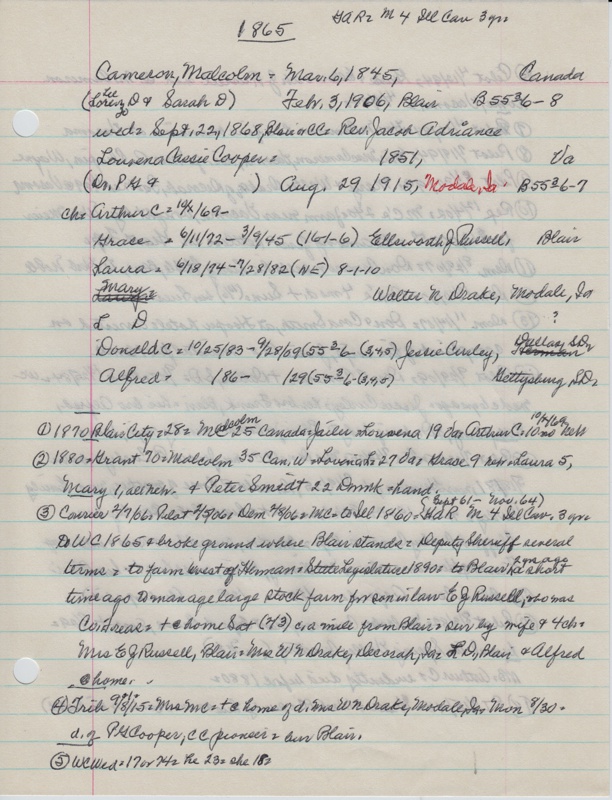 1865
H&R = M 4 Ill Cav 3 yrs
Cameron, Malcolm = Mar. 6, 1845, Canada
(Lorenzo Lee D & Sarah D) Feb. 3, 1906, Blair B5536-8
wed = Sept, 22, 1868, Blair = CC = Rev. Jacob Adriance
Louvena Cassie Cooper = 1851, Va
(Dr. P H & ) Aug. 29 1915, Modale, Ia B5536-7
ch = Arthur C = /69 -
Grace = 6/11/72 - 3/9/45 (161-6) Ellsworth J Russell, Blair
Laura = 6/18/74 - 7/28/82 (NE) 8-1-10
Mary Walter N Drake, Modale, Ia
L D ?
Donald C = 10/25/83 - 9/28/09 (5536-(3,4,5) Jessie Curley, Dallas, SD,
Alfred = 186- /29 (5536-(3,4,5) Gettysburg, SD,
① 1870 Blair City = 28 = Malcolm 25 Canada = Jailer = Louvena 19 Va = Arthur C = 10/12 mo Neb
② 1880 = Grant 70 = Malcolm 35 Can. W = 27 Va = Grace 9 Neb = Laura 5,
Mary 1, all Neb. & Peter Smidt 22 Dnmk = hand.
(Sept 61 - Nov. 64)
③ Courier 2/7/06 = Pilot = Dem = MC = to Ill 1860 = H&R M 4 Ill Cav. 3 yrs
to WC 1865 & broke ground where Blair stands = Deputy Sheriff several
terms = to farm west of Herman = State Legislature 1890s = to Blair a short
time ago to manage large stock farm for son in law E J Russell, who was
Co. Treas = + @ home Sat (2/3) c. a mile from Blair = sur by wife & 4 ch =
Mrs E J Russell, Blair = Mrs W N Drake, Decorah, Ia = L D, Blair & Alfred
@ home.
④ Trib 9/8/15 = Mrs MC = + @ home of d. Mrs W N Drake, Modale, Ia = Mon 8/30 =
d. of P H Cooper, CC pioneer = bur Blair.
⑤ WC Wed = 17 or 74 = he 23 = she 18 =